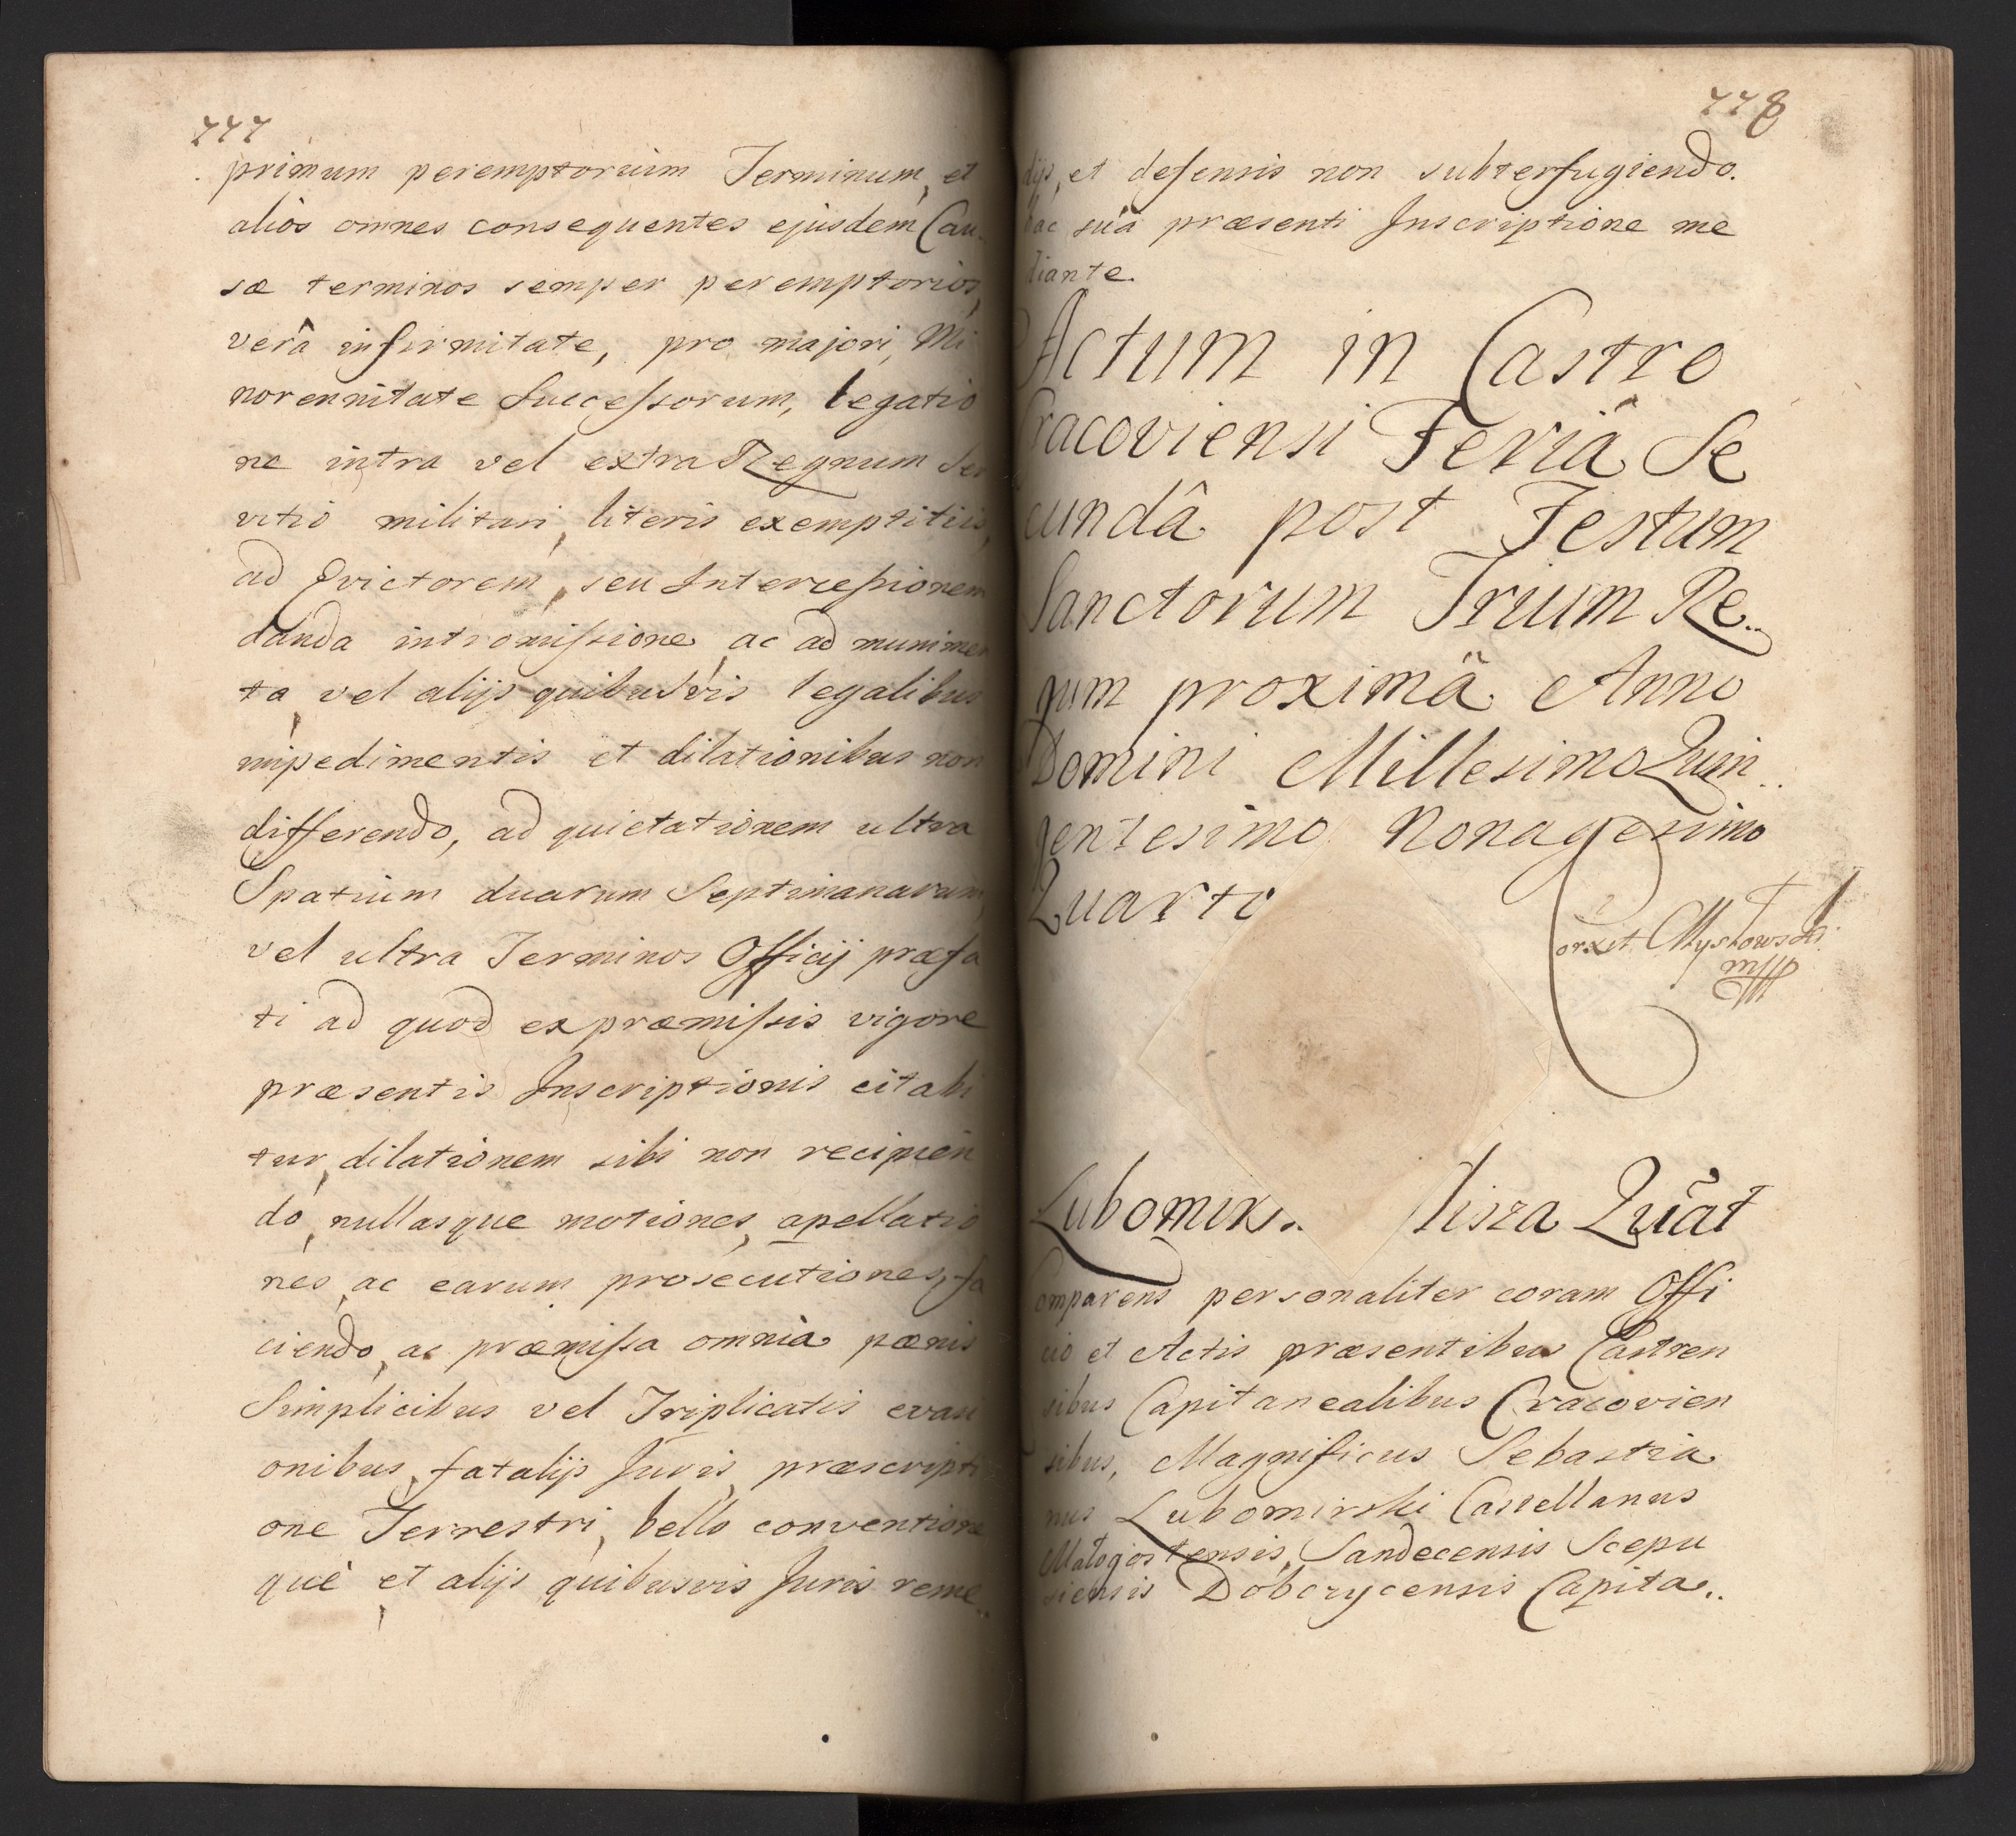 777
primum peremptorium Terminum, et
alios omnes consequentes ejusdem Cau
sæ terminos semper peremptorios,
verâ infirmitate, pro majori, Mi
norennitate Successorum, legatio
ne intra vel extra Regnum Ser
vitio militari, literis exemptitiis,
ad Evictorem, seu Intercessionem
danda intromissione ac ad munimen
ta vel alijs quibusvis legalibus
impedimentis et dilationibus non
differendo, ad quietationem ultra
Spatium duarum Septimanarum,
vel ultra Terminos Officij præfa
ti ad quod ex præmissis vigore
præsentis Inscriptionis citabi
tur, dilationem sibi non recipien
do, nullasque motiones, apellatio
nes, ac earum prosecutiones, fa
ciendo, ac præmissa omnia pænis
Simplicibus vel Triplicatis evasi
onibus, fatalijs Juris, præscripti
one Terrestri, bello conventione
què et alijs quibusvis Juris reme..
778
dijs, et defensis non subterfugiendo.
hac suâ præsenti Inscriptione me
diante.
Actum in Castro
Cracoviensi Feriâ Se
cundâ post Festum
Sanctorum Trium Re..
gum proximâ Anno
Domini Millesimo Quin..
gentesimo Nonagesimo
Quarto
Lubomirs.. lisza Quât
Comparens personaliter coram Offi
cio et Actis præsentibus Castren
sibus Capitanealibus Cracovien
sibus, Magnificus Sebastia
nus Lubomirski Castellanus
Małogostensis, Sandecensis Scepu
siensis Dobczycensis Capita..